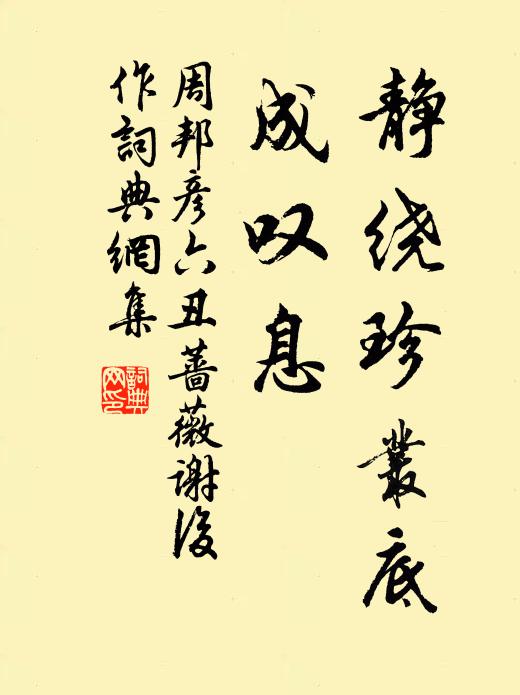 静绕珍叢底
成叹息
周邦彦六丑蔷薇谢後
作詞典網集
詞典
网印